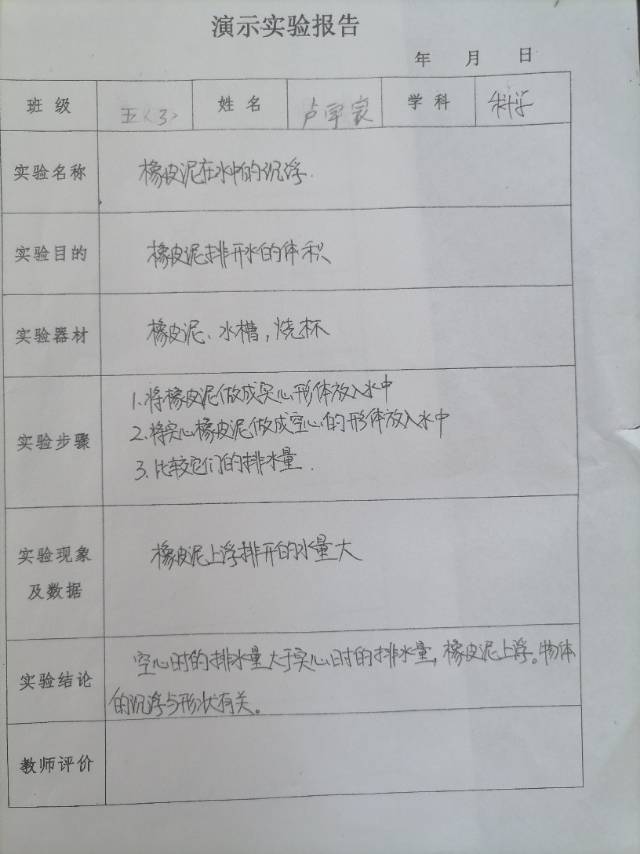 演示实验报告
年 月 日
班级 五(3) 姓名 卢宇 学科 科学
实验名称 橡皮泥在水中的沉浮.
实验目的 橡皮泥排开水的体积
实验器材 橡皮泥、水槽,烧杯
1.将橡皮泥做成实心形体放入水中
实验步骤 2.将实心橡皮泥做成空心的形体放入水中
3.比较它们的排水量.
实验现象 橡皮泥上浮排开的水量大
及数据
空心时的排水量大于实心时的排水量,橡皮泥上浮。物体
实验结论
的沉浮与形状有关。
教师评价